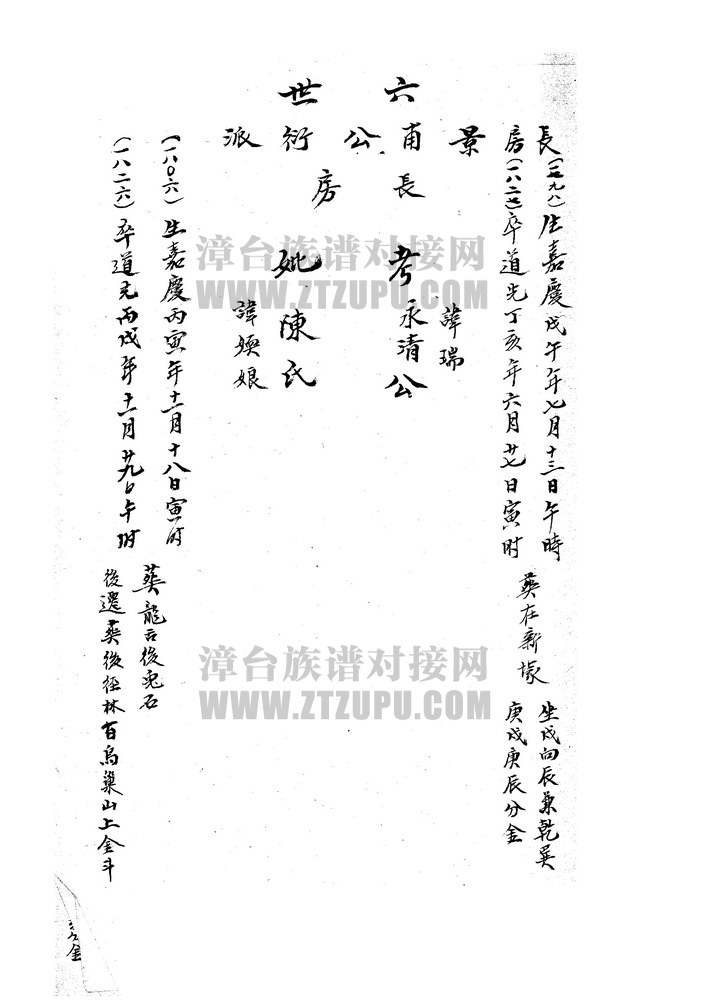 六世
景甫公衍派
長房
長房
(一七九八)生嘉慶戊午年七月十三日午時
(一八二七)卒道光丁亥年六月廿七日寅時
葬在新塚
坐戌向辰兼乾巽
庚戌庚辰分金
考永清公
諱瑞
妣陳氏
諱嫂娘
(一八〇六)生嘉慶丙寅年十一月十八日寅时
(一八二六)卒道光丙戌年十一月廿九日午时
葬龍舌後兎石
後遷葬後徑林百鳥巢山上金斗
漳台族谱对接网
WWW.ZTZUPU.COM
漳台族谱对接网
WWW.ZTZUPU.COM